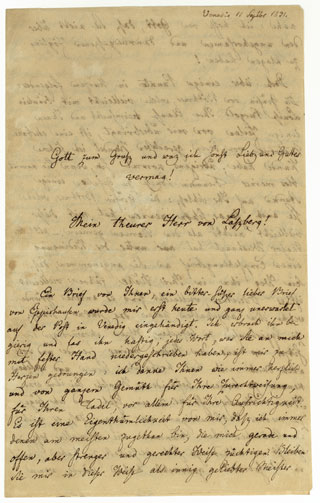 Venedig 11 Septbr 1821.
Gott zum Gruß und was ich sonst Liebs und Gutes
vermag!
Mein theurer Herr von Laßberg!
Ein Brief von Ihnen, ein bitter süßer lieber Brief
von Eppishausen wurde mir erst heute und ganz unerwartet
auf der Post in Venedig eingehändigt. Ich erbrach ihn be-
gierig und las ihn hastig, jedes Wort, was Sie an mich
mit fester Hand niedergeschrieben haben, ist mir zu
Herzen gedrungen ich danke Ihnen wie immer herzlich
und von ganzem Gemüth für Ihre Zurechtweisung,
für Ihren Tadel vor allem für Ihre Aufrichtigkeit.
Es ist eine Eigenthümlichkeit von mir, daß ich immer
denen am meisten zugethan bin, die mich gerade und
offen, aber strenger und gerechter Weise züchtigen. Bleiben
Sie mir in dieser Weise als innig geliebter